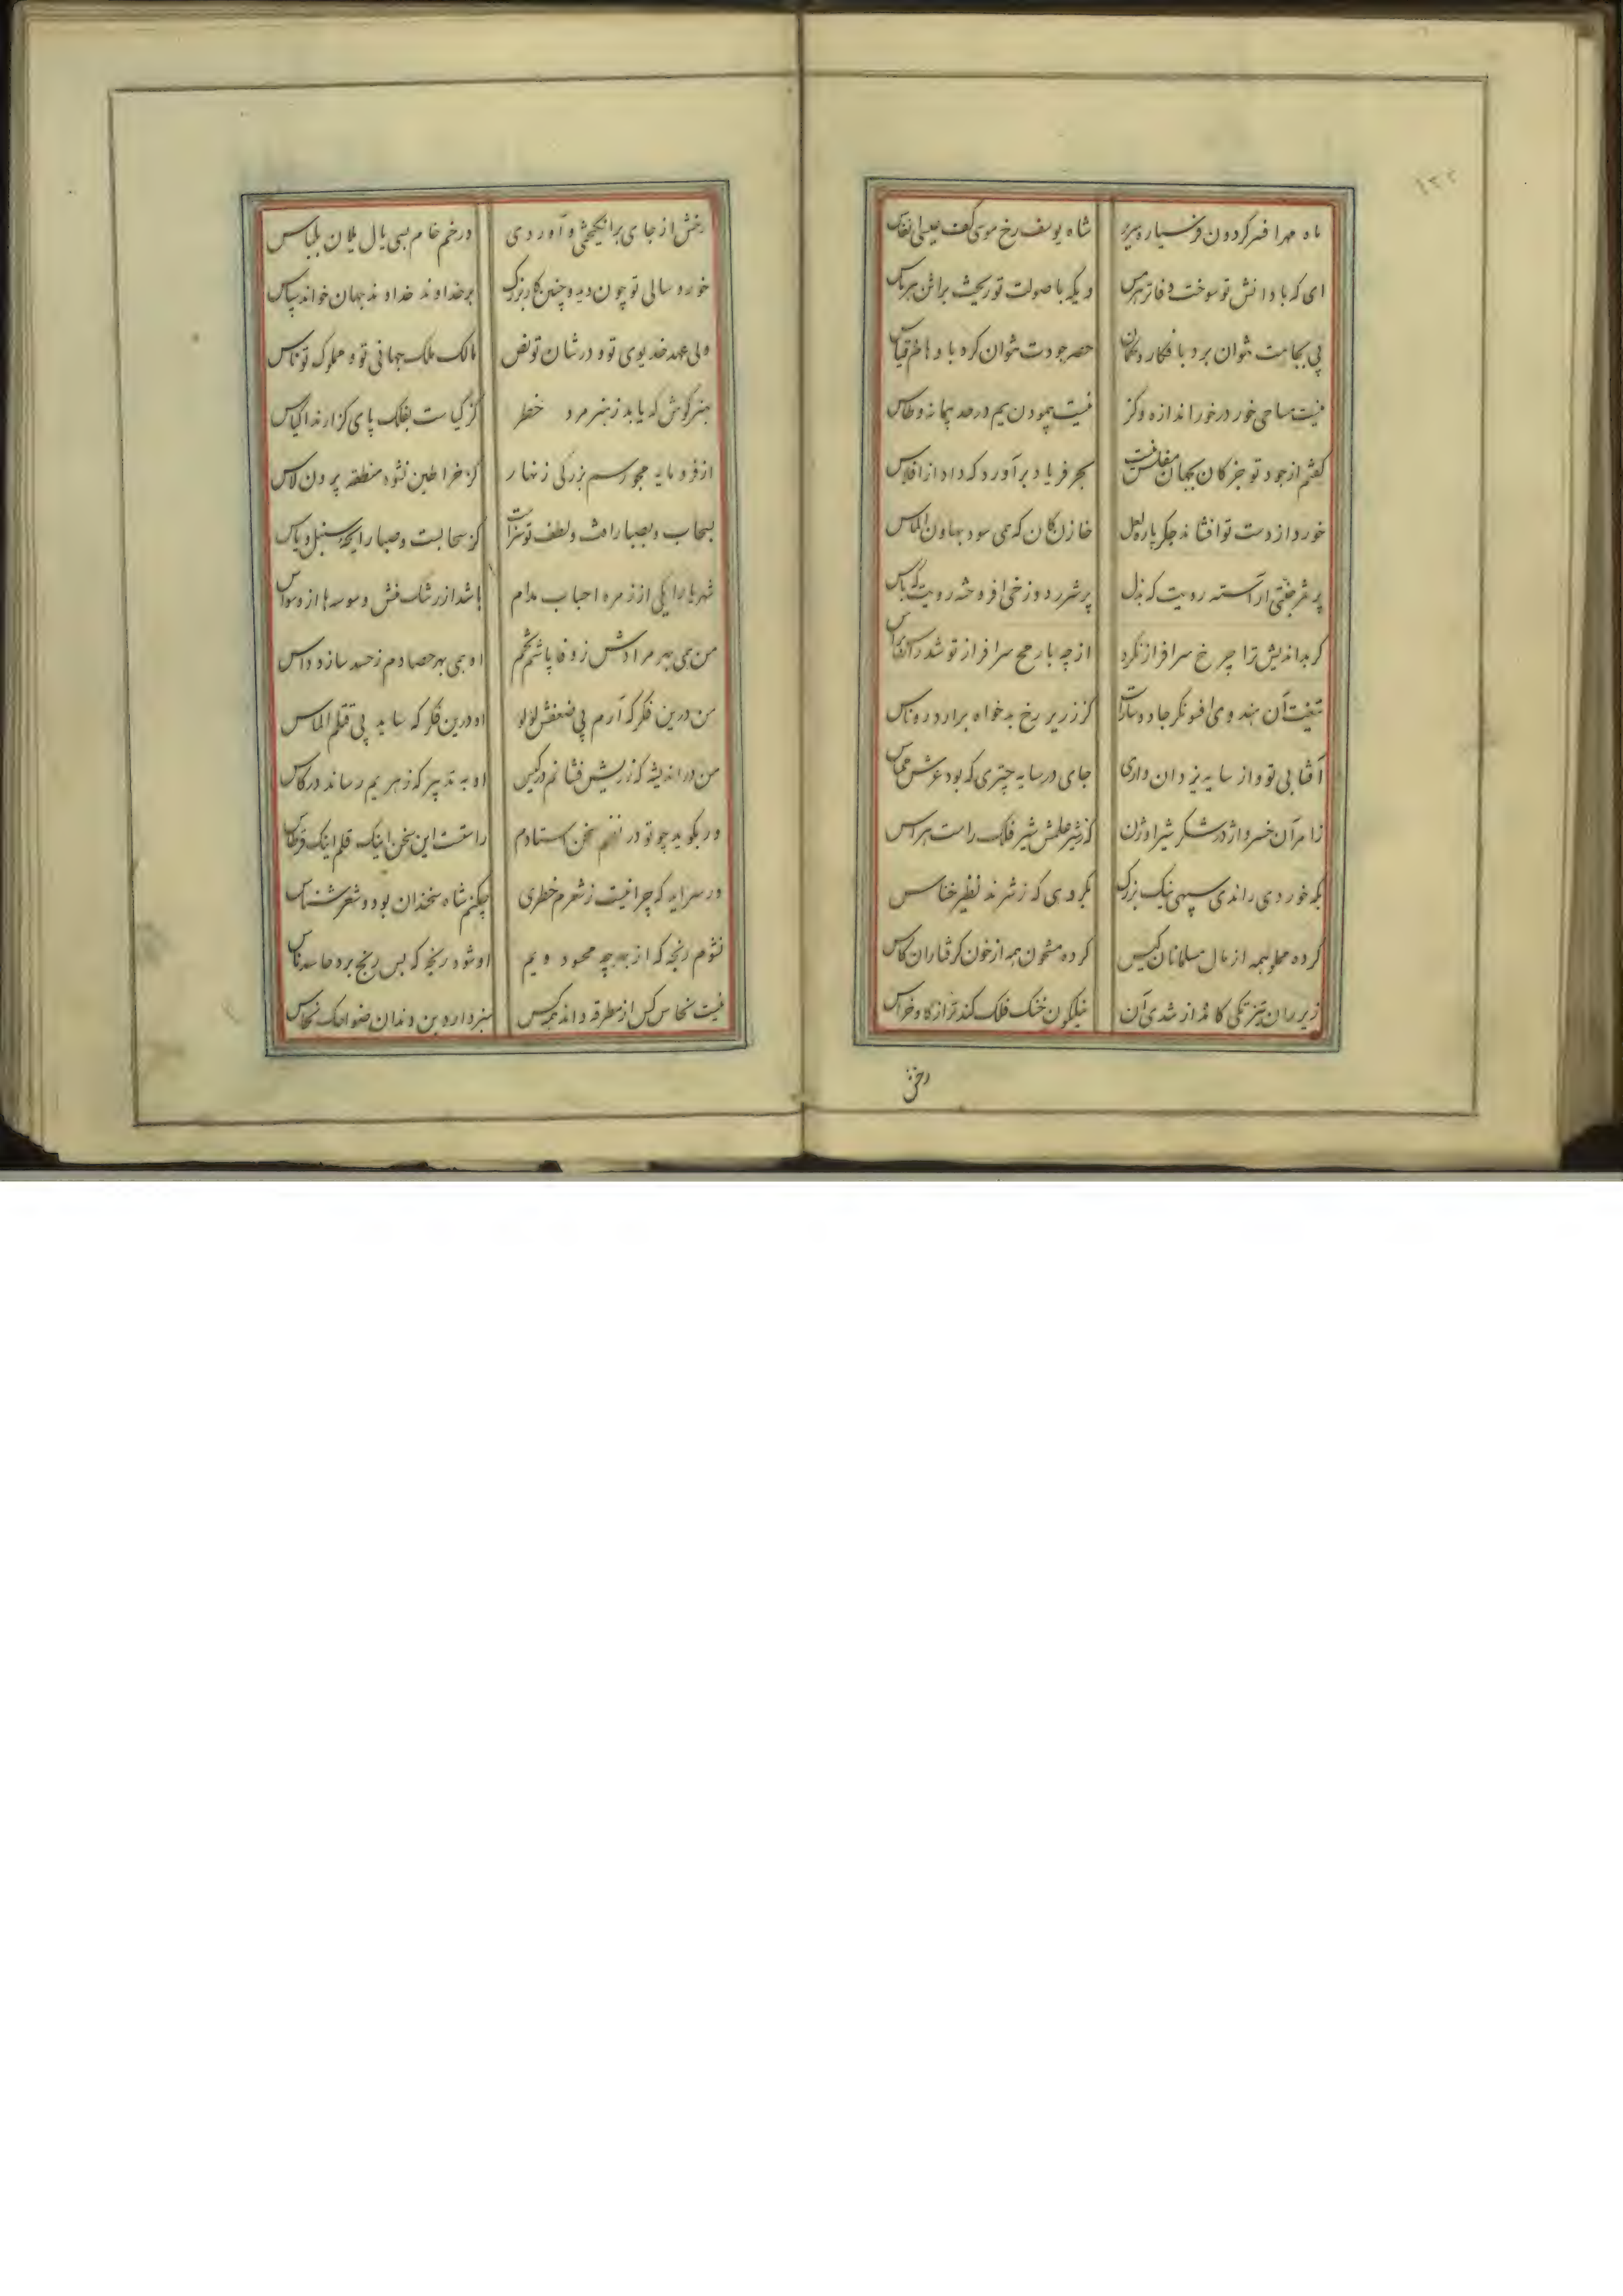 ماه مهر افسر کردون فر سیاره سریر شاه یوسف رخ موسی کف عیسی انفاس
ای که با دانش تو سوخت دفاتر هرمس ویکه با صولت تو ریخت براثن هرماس
پی بجاهت نتوان برد بافکار و کمان حصر جودت نتوان کرد باوهام و قیاس
نیست مساحی خور درخور اندازه و کز نیست پیمودن یم در حد پیمانه و طاس
کفتم از جود تو جز کان بجهان مفلس نیست بحر فریاد برآورد که داد از افلاس
خورد از دست تو افشاند جکر پاره لعل خازن کان که همی سود بهاون الماس
پر ثمر جنتی آراسته رویت که بذل پر شرر دوزخی افروخته رویت که باس
کر بداندیش ترا چرخ سرافراز نکرد از چه با رمح سرافراز تو شد راس
تیغت آن هندوی افسونکر جادو سارست کز زریر رخ بدخواه برآرد روناس
آفتابی تو و از سایه یزدان داری جای در سایه چتری که بود عرش مماس
زامر آن خسرو اژدر شکر شیر اوژن کز شیر علمش شیر فلک راست هراس
بکه خوردی راندی سپهی نیک بزرک بکروهی که ز شرند نظیر خناس
کرده مملو همه از مال مسلمانان کیس کرده مشحون همه از خون کرفتاران کاس
زیر ران تیزتکی کامد از شدی آن نیلکون خنک فلک کندتر از کاو خراس
رخش
رخش از جای برانکیختی و آوردی در خم خام بسی یال یلان بلباس
خورد سالی تو چون دید چنین کار بزرک بر خداوند خداوند جهان خواند سپاس
ولی عهد خدیوی تو و در شان تو نص مالک ملک جهانی تو و مملوک تو ناس
هنر کوش که یابد ز هنر مرد خطر کز کیاست بفلک پای کزارند اکیاس
از فرومایه مجو رسم بزرکی زنهار کز خراطین نشود منطقه پرون لاس
بسحاب و بصبا رافت و لطف تو سزاست کز سحابست و صبا رایحه سنبل و یاس
شهریارا یکی از زمره احباب مدام باشد از رشک منش وسوسه‌ها از وسواس
من همی بهر مرادش ز وفا پاشم تخم او همی بهر حصادم ز حسد سازد داس
من درین فکر که آرم پی ضعفش لؤلؤ او درین فکر که ساید پی قتلم الماس
من در اندیشه که زر بیش فشانم در کیس او به تدبیر که زهریم رساند در کاس
ور بکوید چو تو در نظم سخن استادم راستست این سخن اینک قلم اینک قرطاس
ور سراید که چرا نیست ز شعرم خطری چکنم شاه سخندان بود و شعر شناس
نشوم رنجه که از بهر چه محسود ویم او شود رنجه که بس رنج برد حاسد ناس
نیست نحاس کس از مطرقه داند همه کس سبز دارد بن دندان ضواحک نحاس